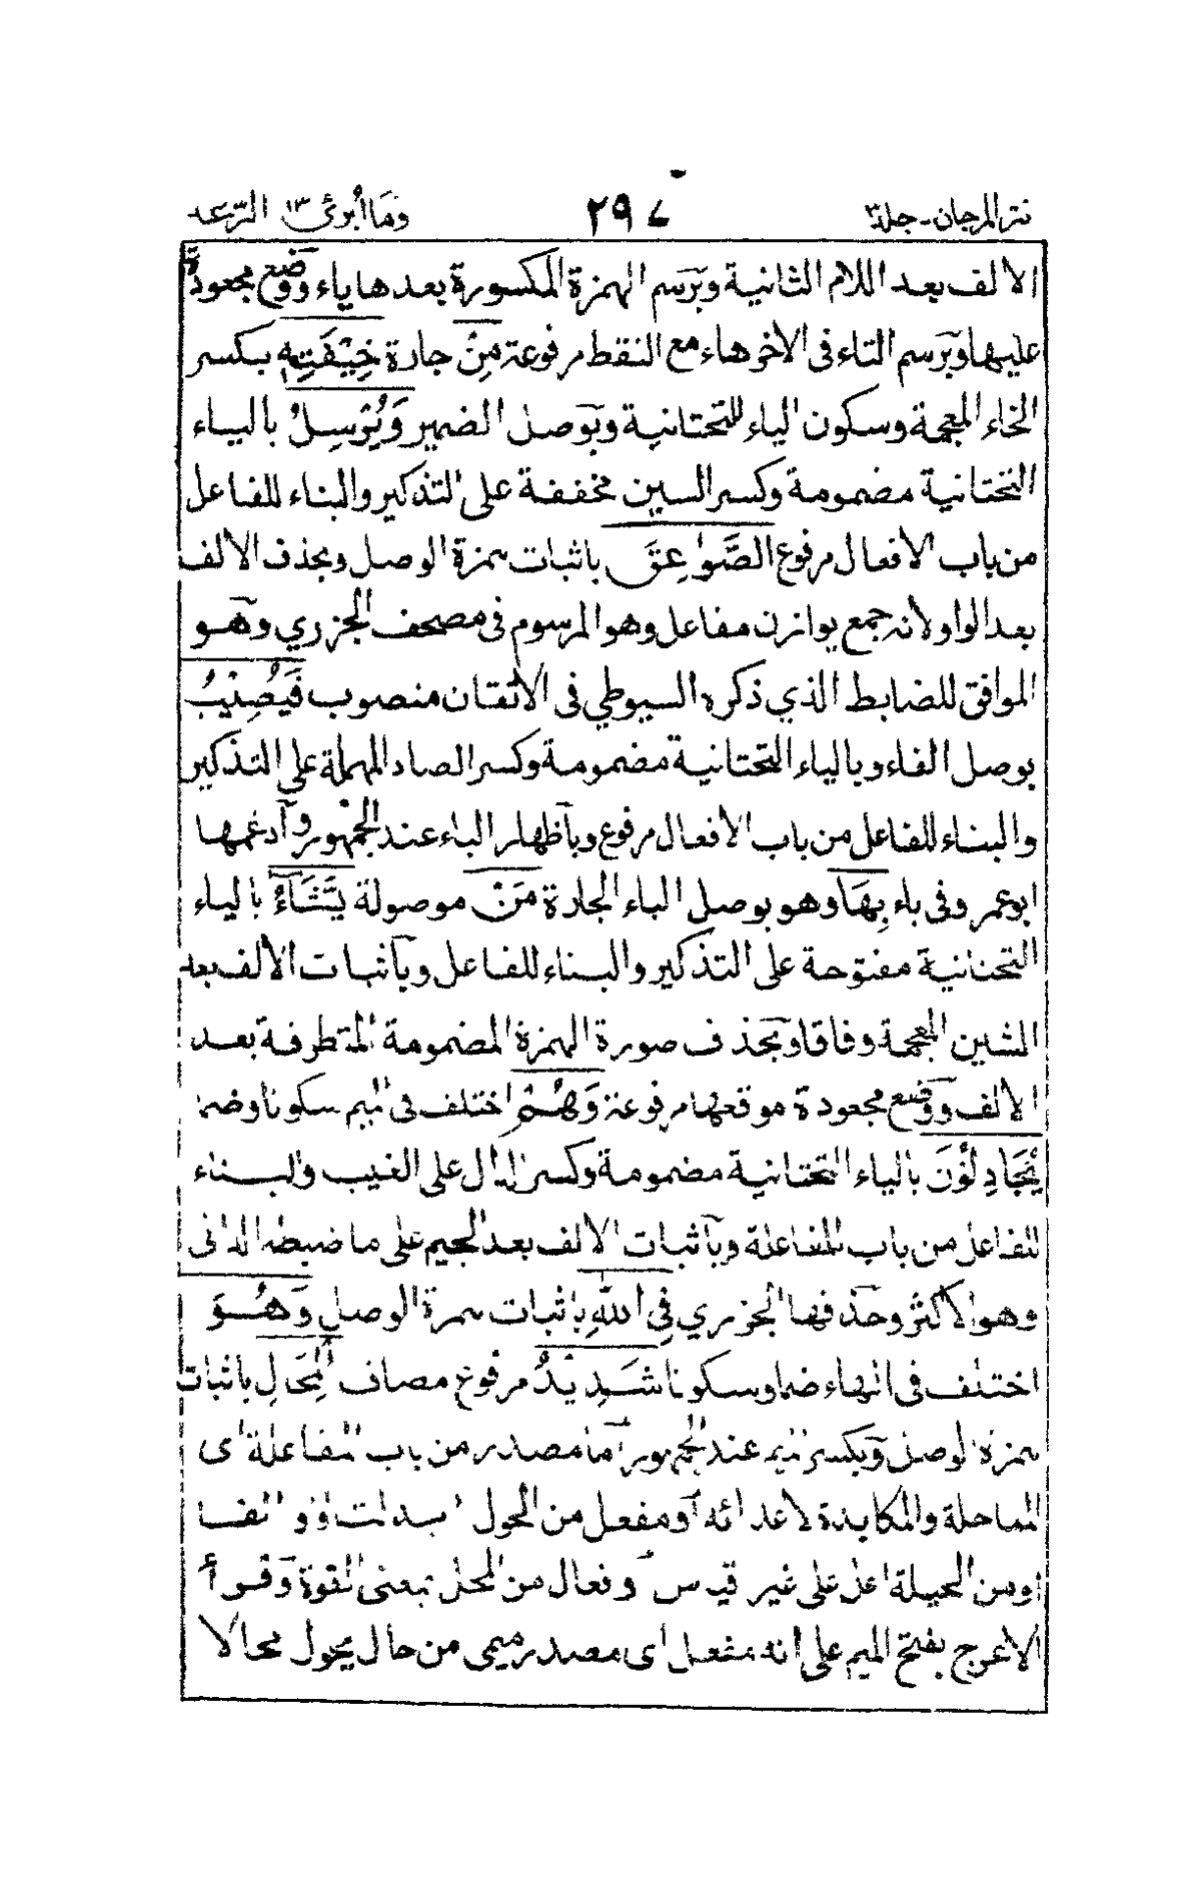 نثر المرجان - جلد٣ ٢٩٧ وَمَا أُبَرِّئُ ١٣ الرّعد
الالف بعد اللام الثانية وبرسم الهمزة المكسورة بعدها ياء ووضع مجعودة
عليها وبرسم التاء فى الآخر هاء مع النقط مرفوعة مِنْ جارة خِيْفَتِهٖ بكسر
الخاء المعجمة وسكون الياء التحتانية وبوصل الضمير وَيُرْسِلُ بالياء
التحتانية مضمومة وكسر السين مخففة على التذكير والبناء للفاعل
من باب الافعال مرفوع الصَّوٰعِقَ باثبات همزة الوصل وبحذف الالف
بعد الواو لانه جمع يوازن مفاعل وهو المرسوم فى مصحف الجزري وهو
الموافق للضابط الذي ذكره السيوطي فى الاتقان منصوب فَيُصِيْبُ
بوصل الفاء وبالياء التحتانية مضمومة وكسر الصاد المهملة على التذكير
والبناء للفاعل من باب الافعال مرفوع وبأظهار الباء عند الجمهور وآدغمها
ابوعمر وفى باء بِهَا وهو بوصل الباء الجارة مَنْ موصولة يَّشَآءُ بالياء
التحتانية مفتوحة على التذكير والبناء للفاعل وبآثبات الالف بعد
الشين المعجمة وفاقا وبحذف صورة الهمزة المضمومة المتطرفة بعد
الالف ووضع مجعودة موقعها مرفوعة وَهُمْ اختلف فى الميم سكونا وضما
يُجَادِلُوْنَ بالياء التحتانية مضمومة وكسر الدال على الغيب والبناء
للفاعل من باب المفاعلة وبآثبات الالف بعد الجيم على ما ضبطه الدانى
وهو الاكثر وحذفها الجزري فِى اللهِ باثبات همزة الوصل وَهُوَ
اختلف فى الهاء ضما وسكونا شَدِيْدُ مرفوع مضاف الْمِحَالِ باثبات
همزة الوصل وبكسر الميم عند الجمهور اما مصدر من باب المفاعلة اى
المماحلة والمكايدة لاعدائه آو مفعل من الحول ابدلت واوه الفا
اومن الحيلة اعل على غير قياس آو فعال من المحل بمعنى القوة وقرأ
الاعرج بفتح الميم على انه مفعل اى مصدر ميمى من حال يحول محالا